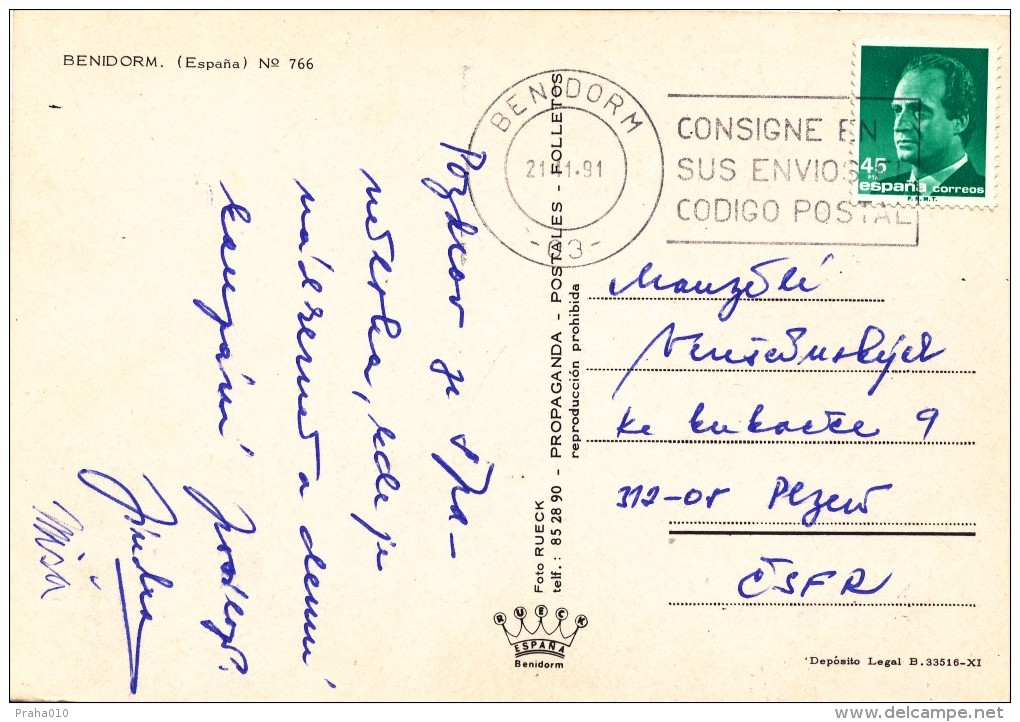 BENIDORM. (España) Nº 766
Pozdrav ze Špa-
kde je
a denní
koupání
Jindra
Míša
Foto RUECK
telf.: 85 28 90 - PROPAGANDA - POSTALES - FOLLETOS
reproducción prohibida
RUECK
ESPAÑA
Benidorm
BENIDORM
21 11.91
- 03 -
CONSIGNE EN
SUS ENVIOS EL
CODIGO POSTAL
45
PTA
españa correos
F.N.M.T.
Manželé
Ke kukačce 9
312-08 Plzeň
ČSFR
Depósito Legal B. 33516-XI
Praha010
delcampe.net